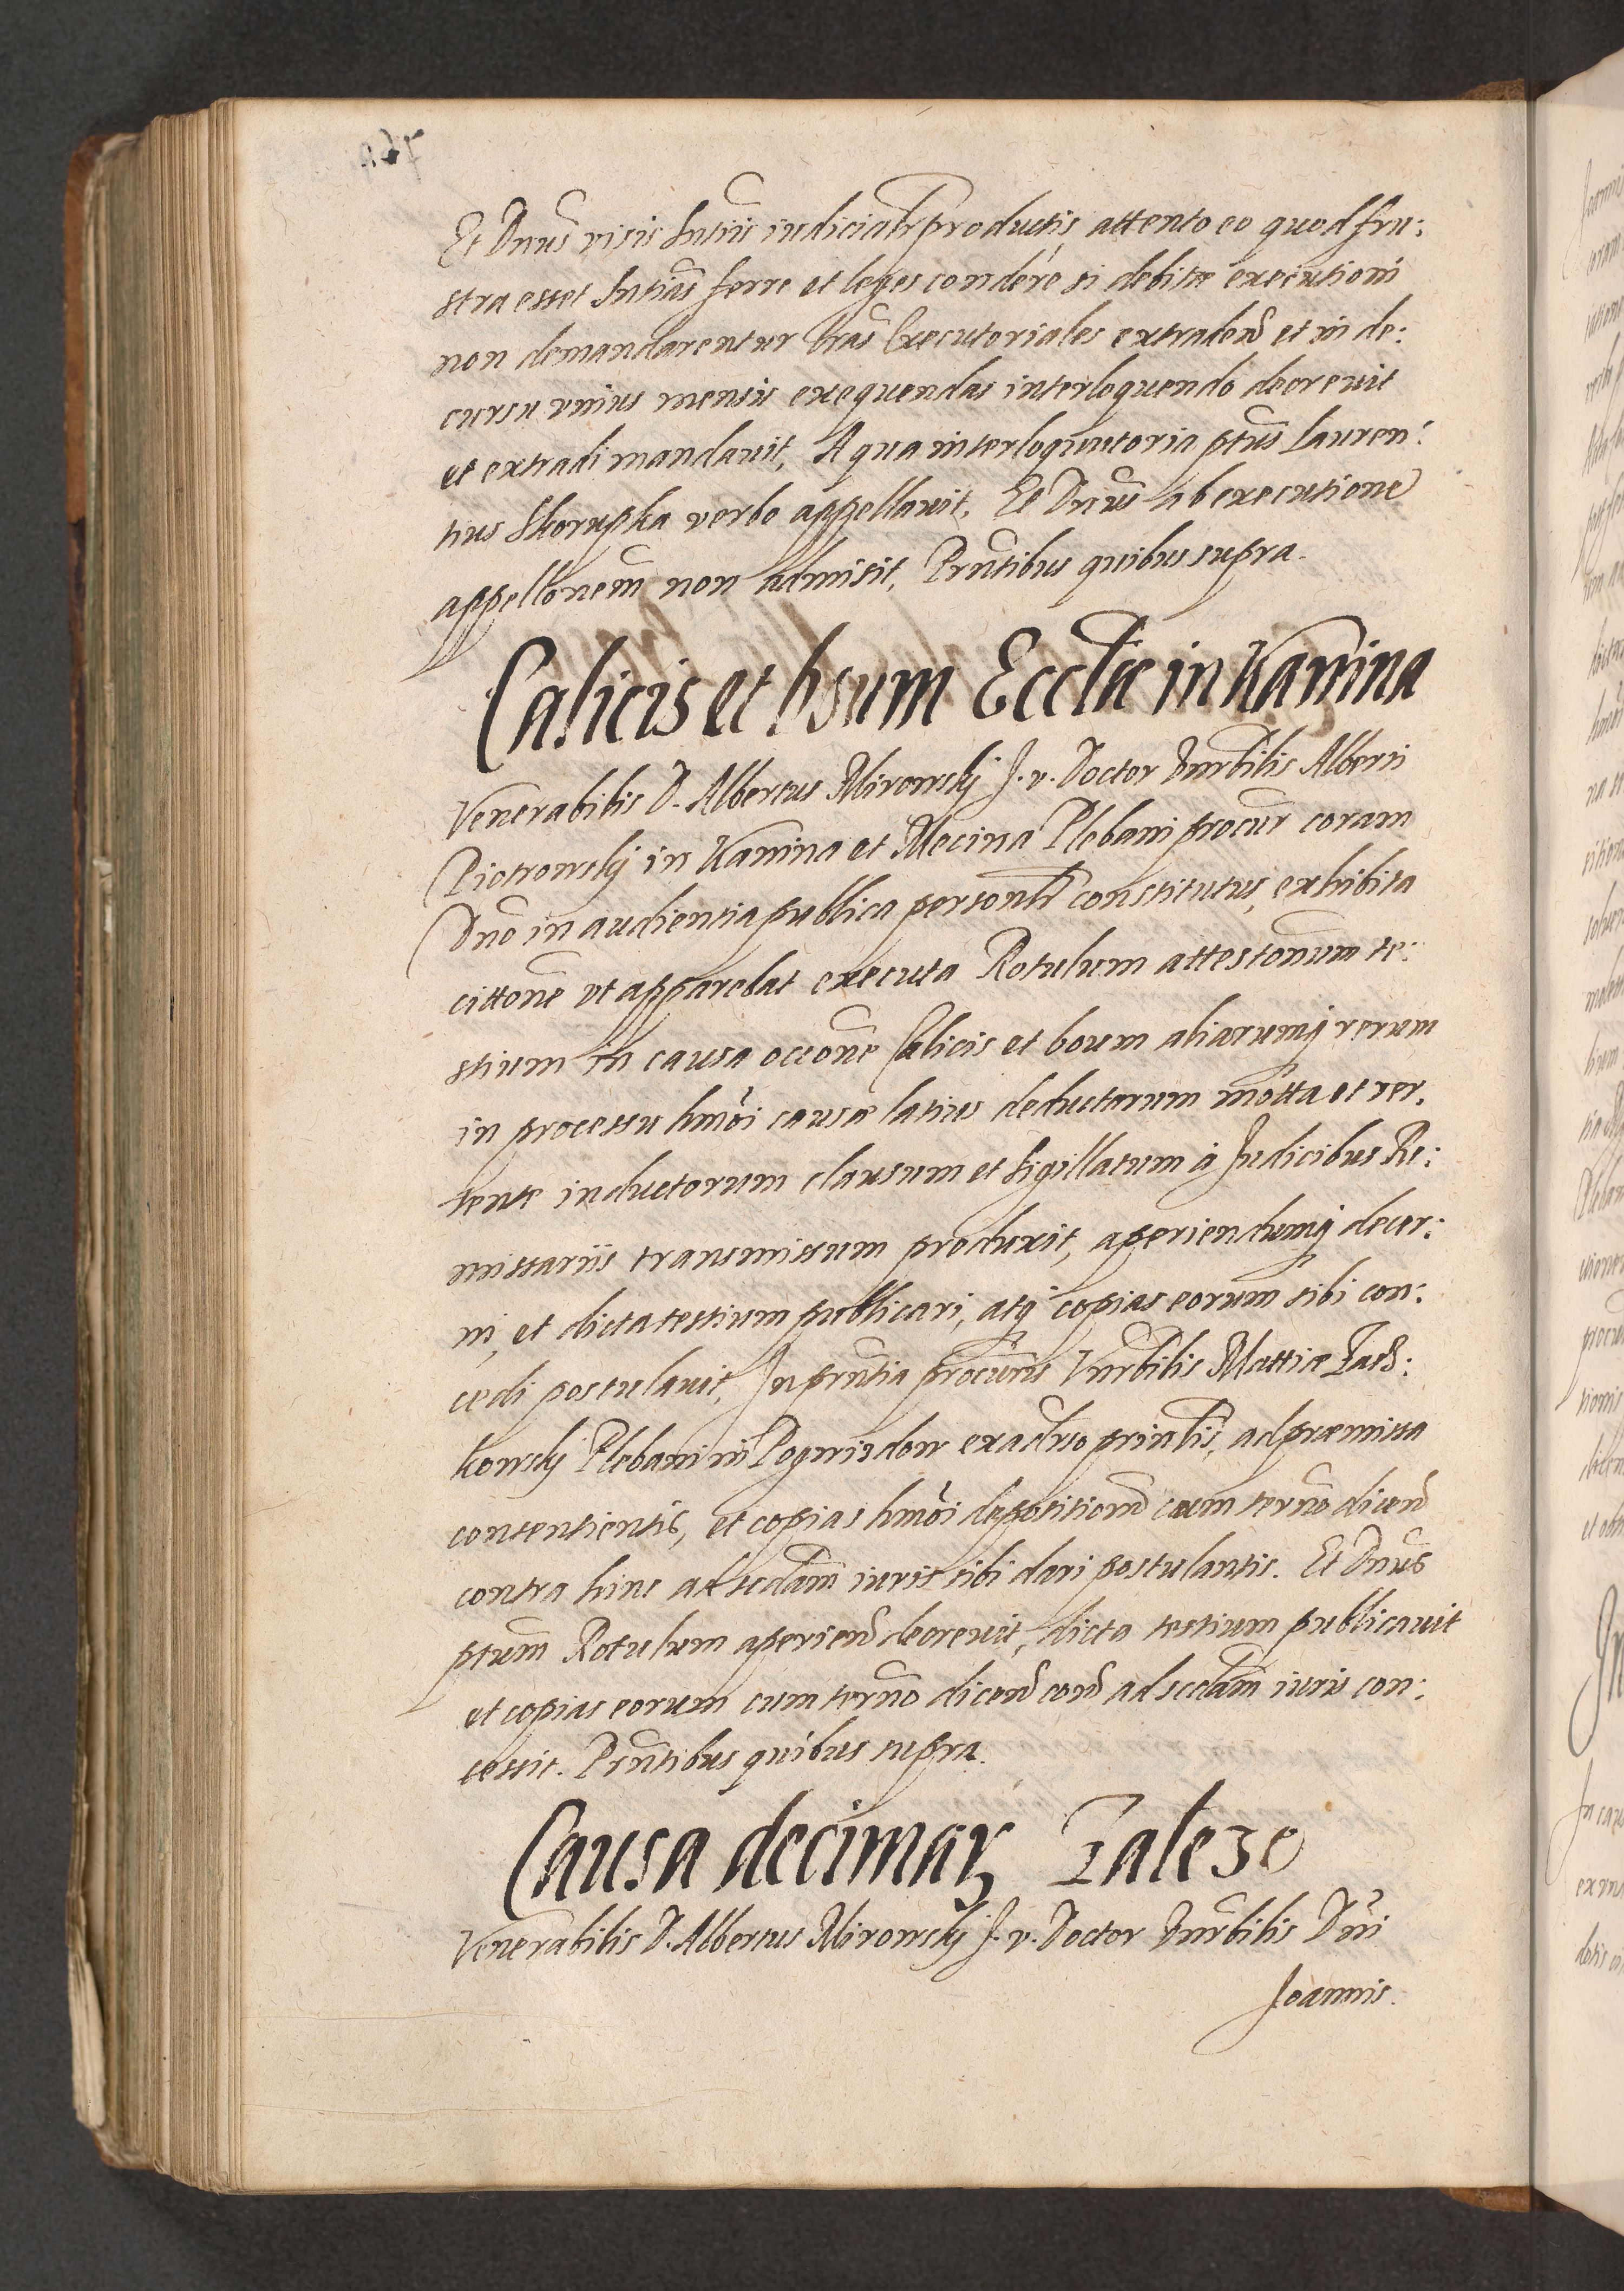 Et Dnus visis Sntiis iudicialr productis, attento eo quod fru:
stra esset Sntias ferre et leges condere si debitæ executioni
non demandarentur Lras Executoriales extradend et in de:
cursu vnius mensis exequendas interloquendo decreuit
et extradi mandauit, A qua interloquutoria ptus Lauren:
tius Skorupka verbo appellauit. Et Dnus ab executione
appellonem non admisit, Prntibus quibus supra.
Calicis et boum Ecctiæ in Kamina
Venerabilis D. Albertus Mirowskj J. v. Doctor Vnrbilis Alberti
Piotrowskj in Kanina et Mecina Plebani procur coram
Dno in audientia publica personlr constitutus, exhibita
cittone vt apparebat executa Rotulum attestonum te:
stium in causa occone Calicis et boum aliarumq rerum
in processu hmoi causæ latius deductarum motta et ver:
tente inductorum clausum et Sigillatum à Judicibus Re:
missariis transmissum produxit, aperiendumq decer:
ni, et dicta testium publicari, atq copias eorum sibi con:
cedi postulauit, In prntia procuris Vnrbilis Mattiæ
kowskj Plebani in ex aduerso prinlis, ad præmissa
consentientis, et copias hmoi depositionu cum termno dicend
contra hinc ad scdam iuris sibi dari postulantis. Et Dnus
ptum Rotulum aperiend decreuit, dicta testium publicauit
et copias eorum cum termno dicend cond ad scdam iuris con:
cessit. Prntibus quibus supra.
Causa decimarum Zaleze
Venerabilis D. Albertus Mirowskj J. v. Doctor Vnrbilis Dni
Joannis.